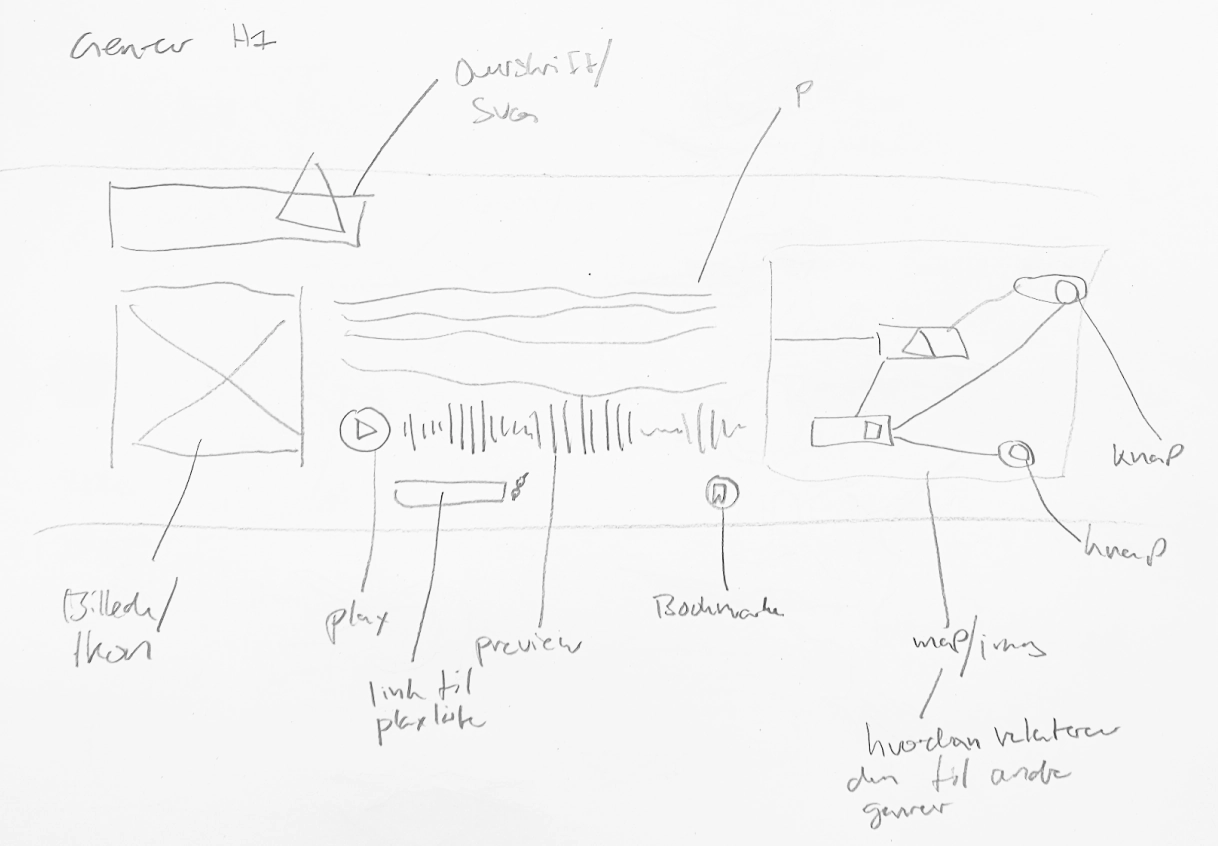 Genrer H1
Overskrift/
SVG
P
knap
knap
Billede/
Ikon
play
link til
playliste
preview
Bookmark
map/image
hvordan relaterer
den til andre
genrer